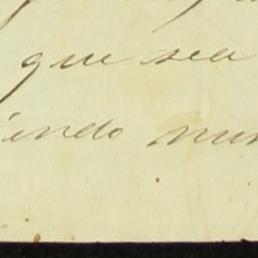 que sea
iendo nun